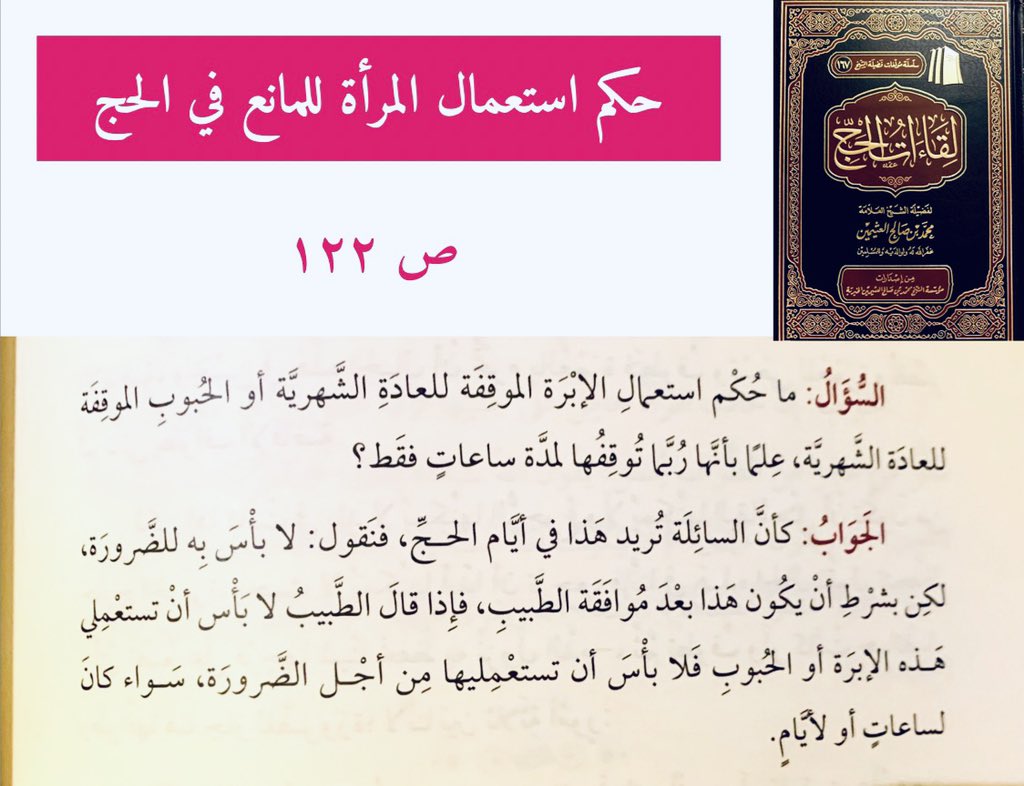 حكم استعمال المرأة للمانع في الحج
ص ١٢٢
سلسلة مؤلفات فضيلة الشيخ (١٦٧)
لِقَاءَاتُ الحَجِّ
لفضيلة الشيخ العلامة
محمد بن صالح العثيمين
غفر الله له ولوالديه وللمسلمين
من إصدارات
مؤسسة الشيخ محمد بن صالح العثيمين الخيرية
السُّؤَالُ: ما حُكْم استعمالِ الإبْرَة الموقِفَة للعادَةِ الشَّهريَّة أو الحُبوبِ الموقِفَة
للعادَة الشَّهريَّة، عِلمًا بأنَّها رُبَّما تُوقِفُها لمدَّة ساعاتٍ فقَط؟
الجَوَابُ: كأنَّ السائِلَة تُريد هَذا في أيَّام الحـجِّ، فنَقول: لا بأْسَ بِه للضَّرورَة،
لكِن بشرْطِ أنْ يكُون هَذا بعْدَ مُوافَقَة الطَّبيبِ، فإِذا قالَ الطَّبيبُ لا بَأْس أنْ تستعْمِلي
هَـذه الإبرَة أو الحُبوبِ فَلا بأْسَ أن تستعْمِليها مِن أجْـل الضَّـرورَة، سَـواء كانَ
لساعاتٍ أو لأيَّامٍ.